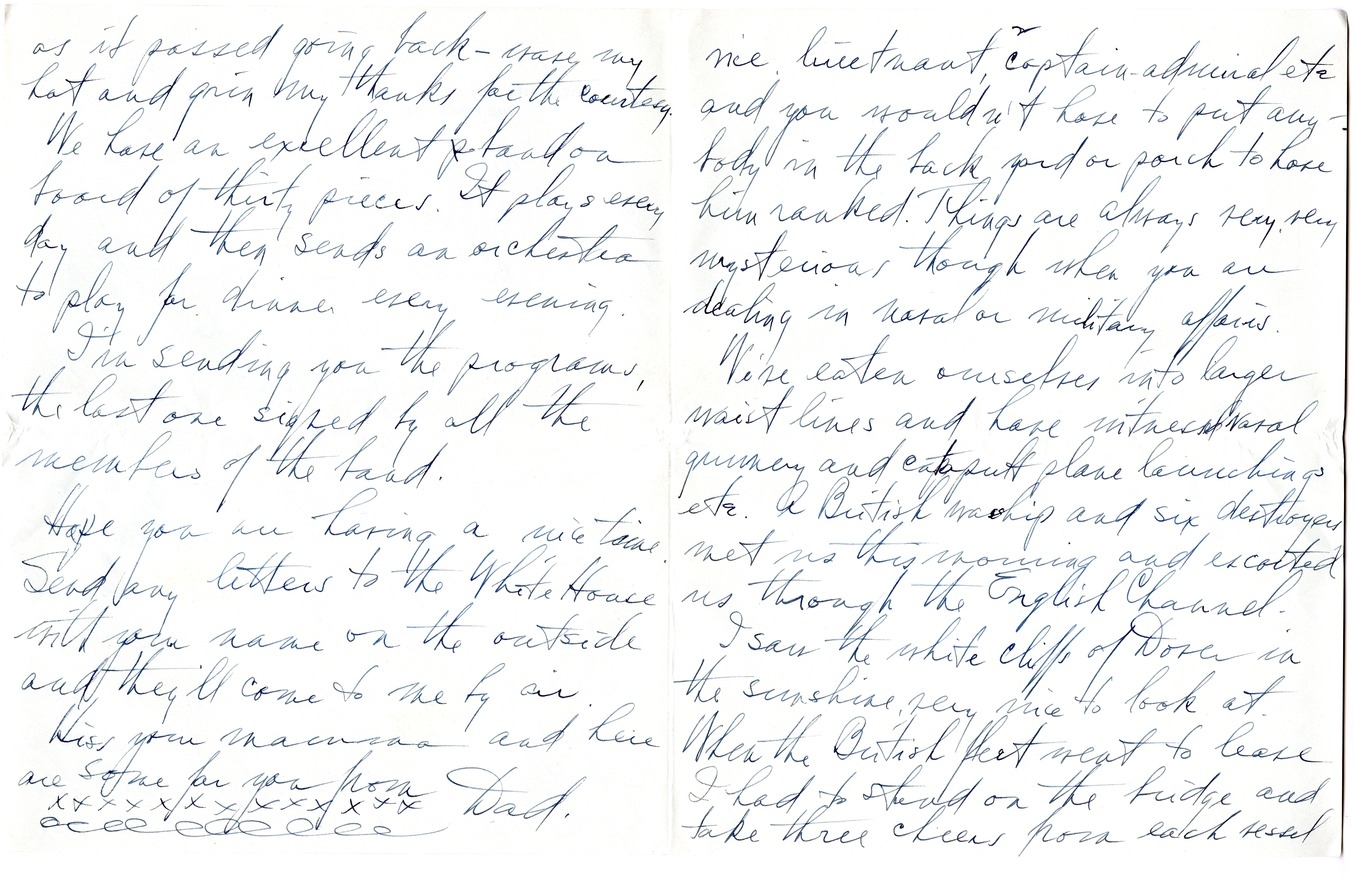 as it passed going back – wave my
hat and grin my thanks for the courtesy.
We have an excellent band on
board of thirty pieces. It plays every
day and then sends an orchestra
to play for dinner every evening.
I'm sending you the programs,
the last one signed by all the
members of the band.
Hope you are having a nice time.
Send any letters to the White House
with your name on the outside
and they'll come to me by air.
Kiss your mamma and here
are some for you from Dad.
xxxxxxxxxxxxxxx
oooooooooooo
vice lieutnant, or captain-admiral etc
and you wouldn't have to put any-
body in the back yard or porch to have
him ranked. Things are always very, very
mysterious though when you are
dealing in naval or military affairs.
We've eaten ourselves into larger
waist lines and have witnessed Naval
gunnery and catapult plane launchings
etc. A British warship and six destroyers
met us this morning and escorted
us through the English Channel.
I saw the white cliffs of Dover in
the sunshine, very nice to look at.
When the British fleet went to leave
I had to stand on the bridge and
take three cheers from each vessel